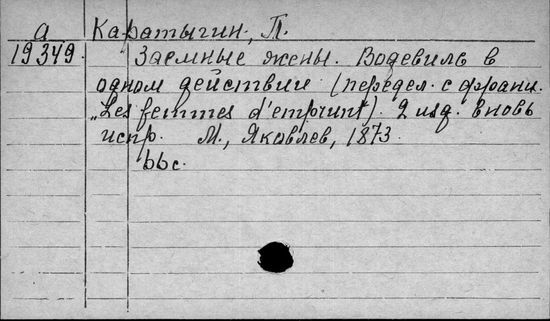 а Каратыгин, П.
19349 Заемные жены. Водевиль в
одном действии (передел. с франц.
„Les femmes d'emprunt"). 2 изд. вновь
испр. М., Яковлев, 1873.
66 с.